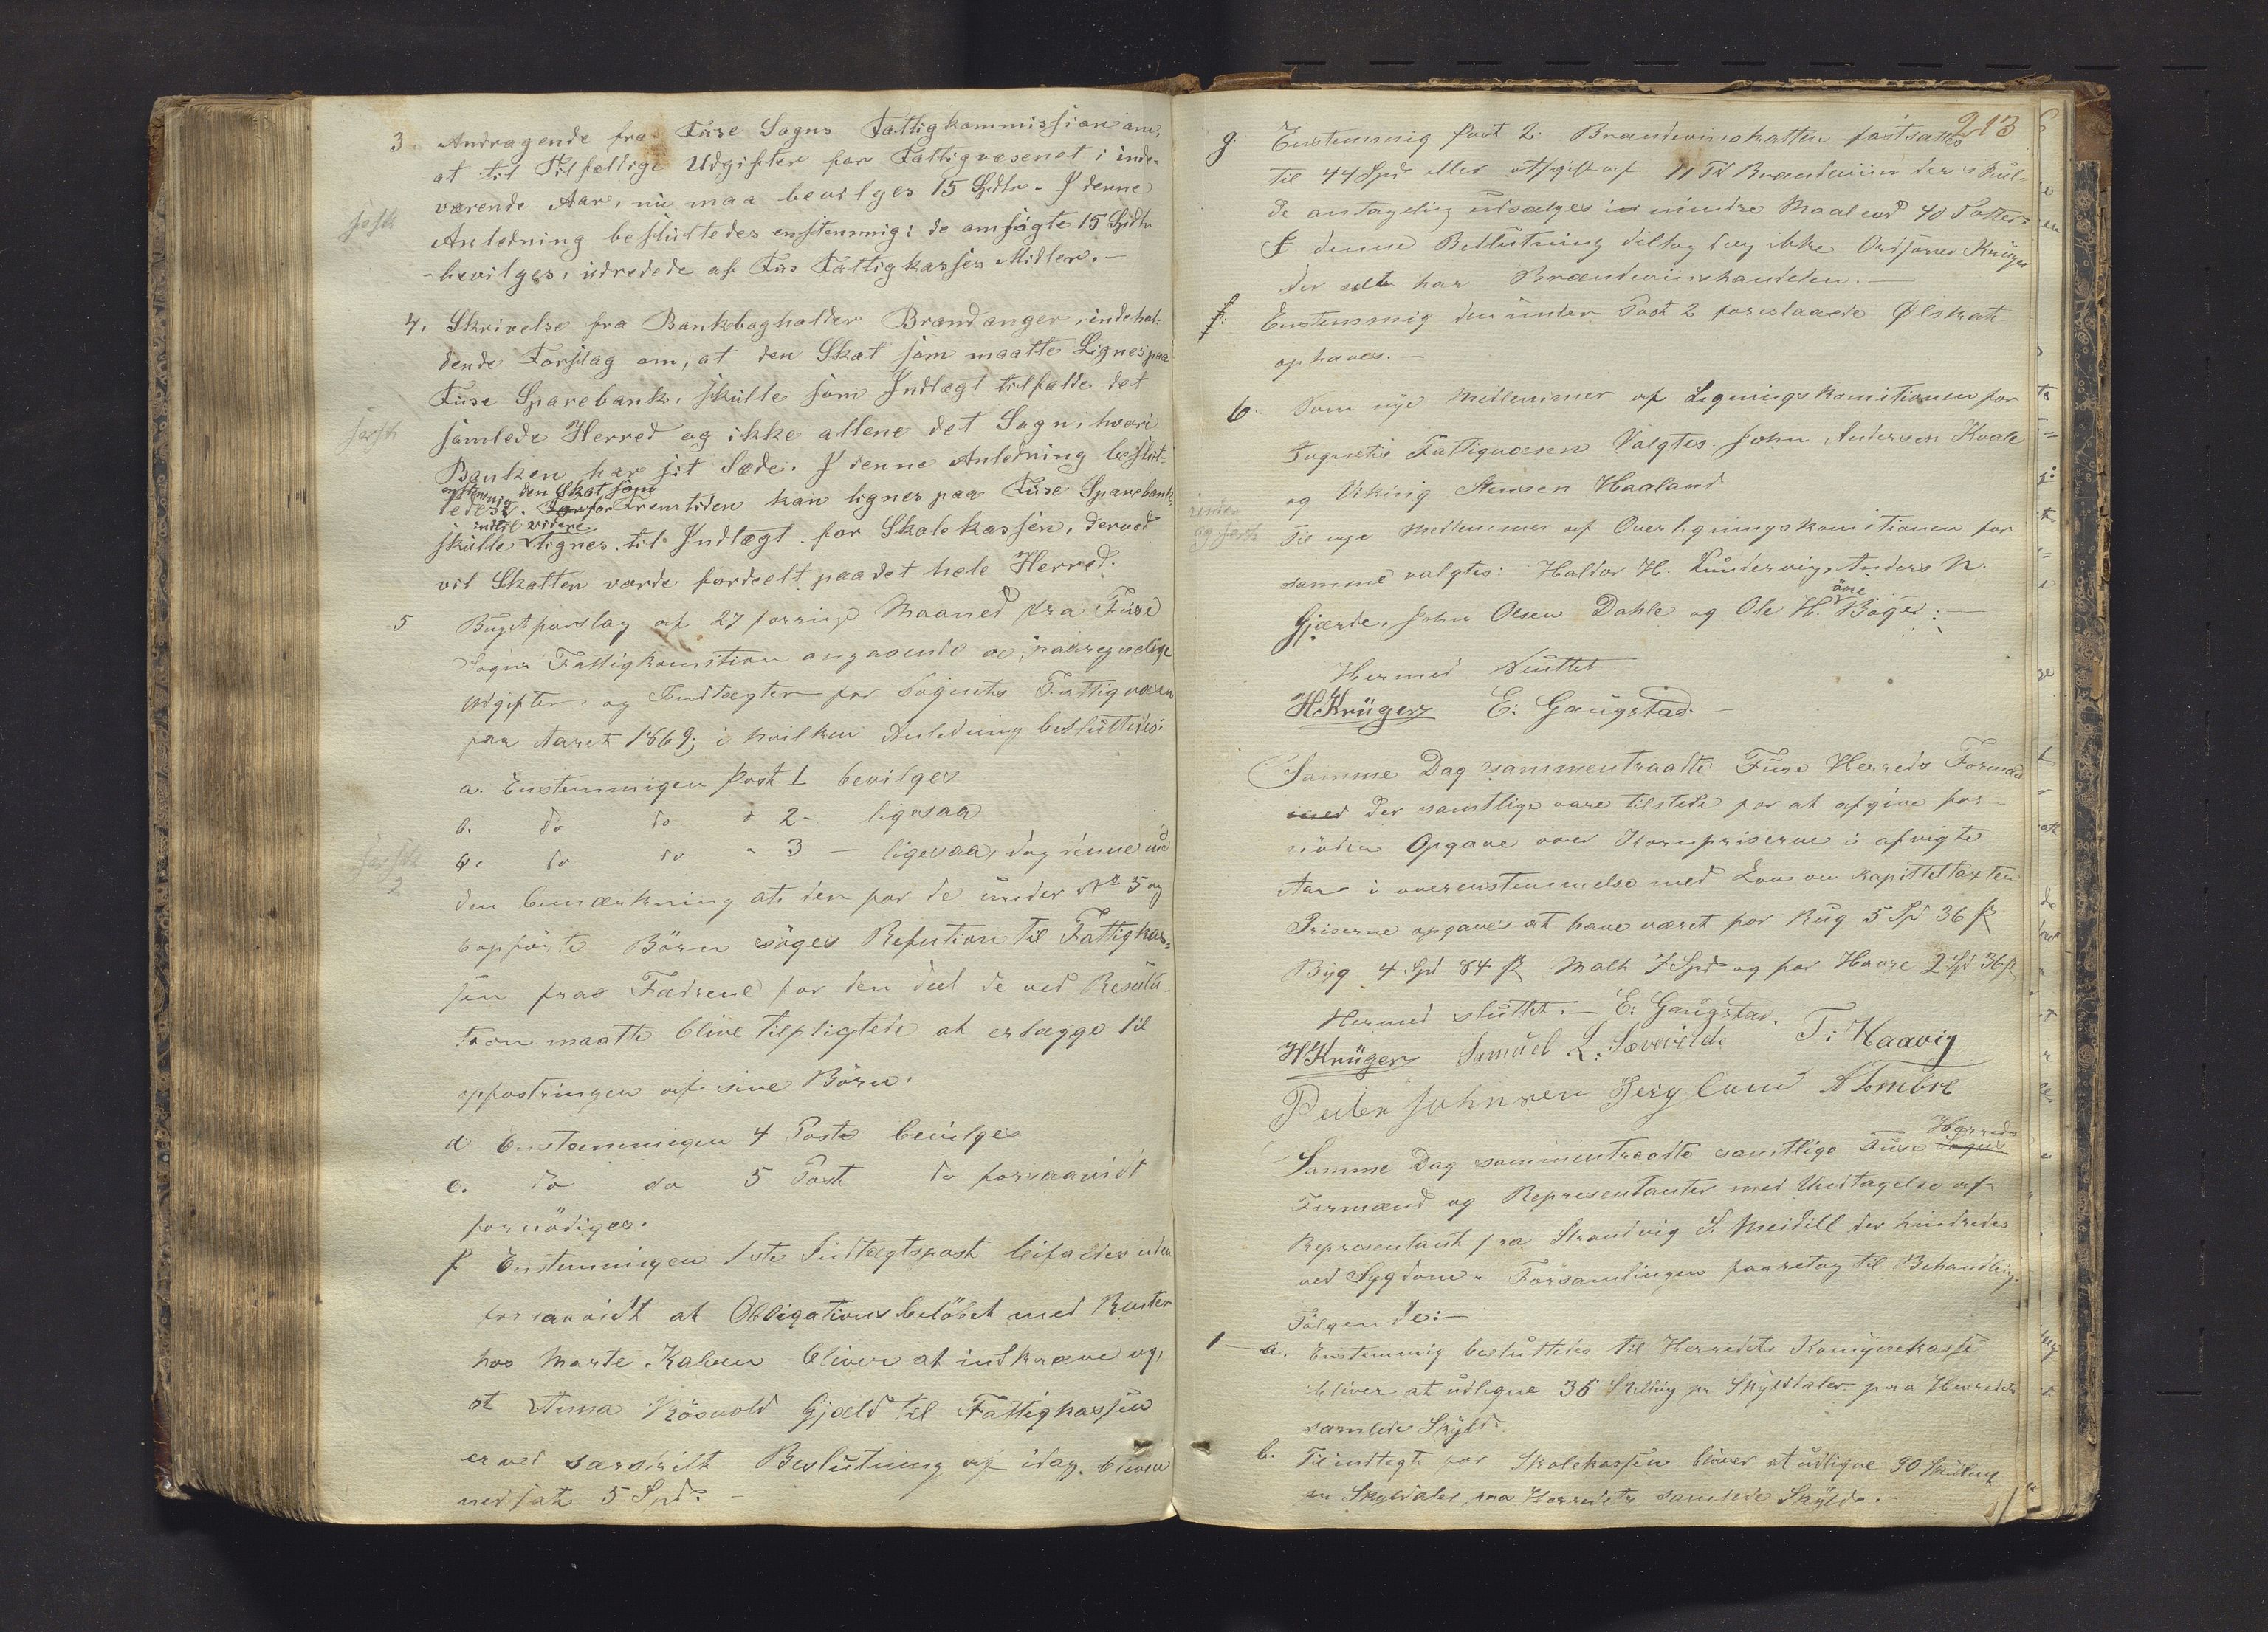 3. Andragende fra Fuse Sogns Fattigkommission om,
at til Tilfældige Udgifter for Fattigvæsenet i inde-
værende Aar, nu maa bevilges 15 Spdlr. I denne
Anledning besluttedes enstemmig: de omsøgte 15 Spdlr
bevilges, udredede af Fus Fattigkasses Midler.-
4. Skrivelse fra Bankbogholder Brandanger, indehol-
dende Forslag om, at den Skat som maatte Lignes paa
Fuse Sparebank, skulle som Indtægt tilfalde det
samlede Herred og ikke allene det Sogn, hvori
Banken har sit Sæde. I denne Anledning beslut-
enstemmig den Skat som
tedes: for Fremtiden kan lignes paa Fuse Sparebank,
indtil videre
skulle lignes til Indtægt for Skolekassen, derved
vil Skatten vorde fordeelt paa det hele Herred.
5 Bugetforslag af 27 forrige Maaned fra Fuse
Sogns Fattigkomition angaaende de paaregnelige
Udgifter og Indtægter for Sognets Fattigvæsen
for Aaret 1869; i hvilken Anledning besluttedes:
a. Enstemmigen Post 1 bevilges
b. do do " 2 - ligesaa
c. do do " 3 - ligesaa, dog denne med
den bemærkning at den for de under No 5 og
6 opførte Börn söges Refution til Fattigkas-
sen fra Fædrene for den deel de ved Resolu-
tion maatte blive tilpligtede at erlægge til
opfostringen af sine Börn.
d Enstemmigen 4 Post bevilges
e. do do 5 Post do forsaavidt
fornödiges.
f Enstemmigen 1ste Indtægtspost bifaldes uden
forsaavidt at Obligationsbelöbet med Renter
hos Marte Kalven bliver at indkræve og,
at Anna Rösvold Gjæld til Fattigkassen
er ved særskilt Beslutning af idag bleven
nedsat 5 Spd. -
213
g. Enstemmig Post 2. Brændevinskatten fastsattes
til 44 Spd eller afgift af 11 Td Brændeviin der skul-
de antagelig udsælges i mindre Maal end 40 Potter.
I denne Beslutning deltog dog ikke Ordförer Krüger
der selv har Brændevinshandelen. -
f: Enstemmig den under Post 2 foreslaaede Ølskat
ophæves. -
6. Som nye Medlemmer af Ligningskomitionen for
Sognets Fattigvæsen Valgtes John Andersen Kvale
og Viking Stensen Haaland
Til nye Medlemmer af Overligningskomitionen for
samme valgtes: Haldor H. Lundervig, Anders N.
övre
Gjærde, John Olsen Dahle og Ole H. Böge: -
Hermed Sluttet.
HKrüger E: Gaugstad. -
Samme Dag sammentraadte Fuse Herreds Formænd
der samtlige vare tilstede for at afgive for-
nöden Opgave over Kornpriserne i afvigte
Aar i overenstemmelse med Lov om Kapitteltaxten
Priserne opgaves at have været for Rug 5 Spd 36 ß
Byg 4 Spd 84 ß Malt 7 Spd og for Havre 2 Spd 36 ß
Hermed sluttet. - E: Gaugstad.
HKrüger Samuel L. Sævareide T: Haavig
Peder Johnsen Berglund A Tombre
Herreds
Samme Dag sammentraadte samtlige Fuse Sogns
Formænd og Representanter med Undtagelse af
Representant fra Strandvig S. Meidell der hindredes
ved Sygdom. Forsamlingen foaretog til Behandling
Fölgende: -
1 a. Enstemmig besluttedes til Herredets Komynekasse
bliver at udligne 36 Skilling pr Skylddaler paa Herredets
samlede Skyld.
b. Til indtægt for Skolekassen bliver at udligne 90 Skilling
pr Skylddaler paa Herredets samlede Skyld. -